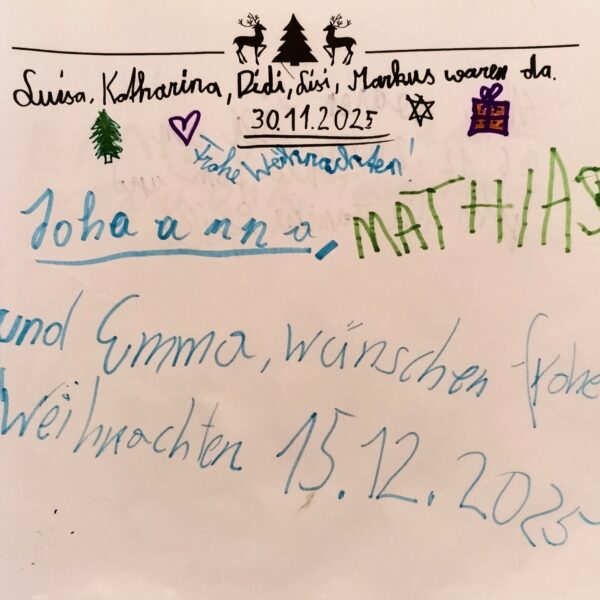 Luisa, Katharina, Didi, Sisi, Markus waren da.
30.11.2025
Frohe Weihnachten!
Johaanna, MATHIAS
und Emma, wünschen frohe
Weihnachten 15.12.2025